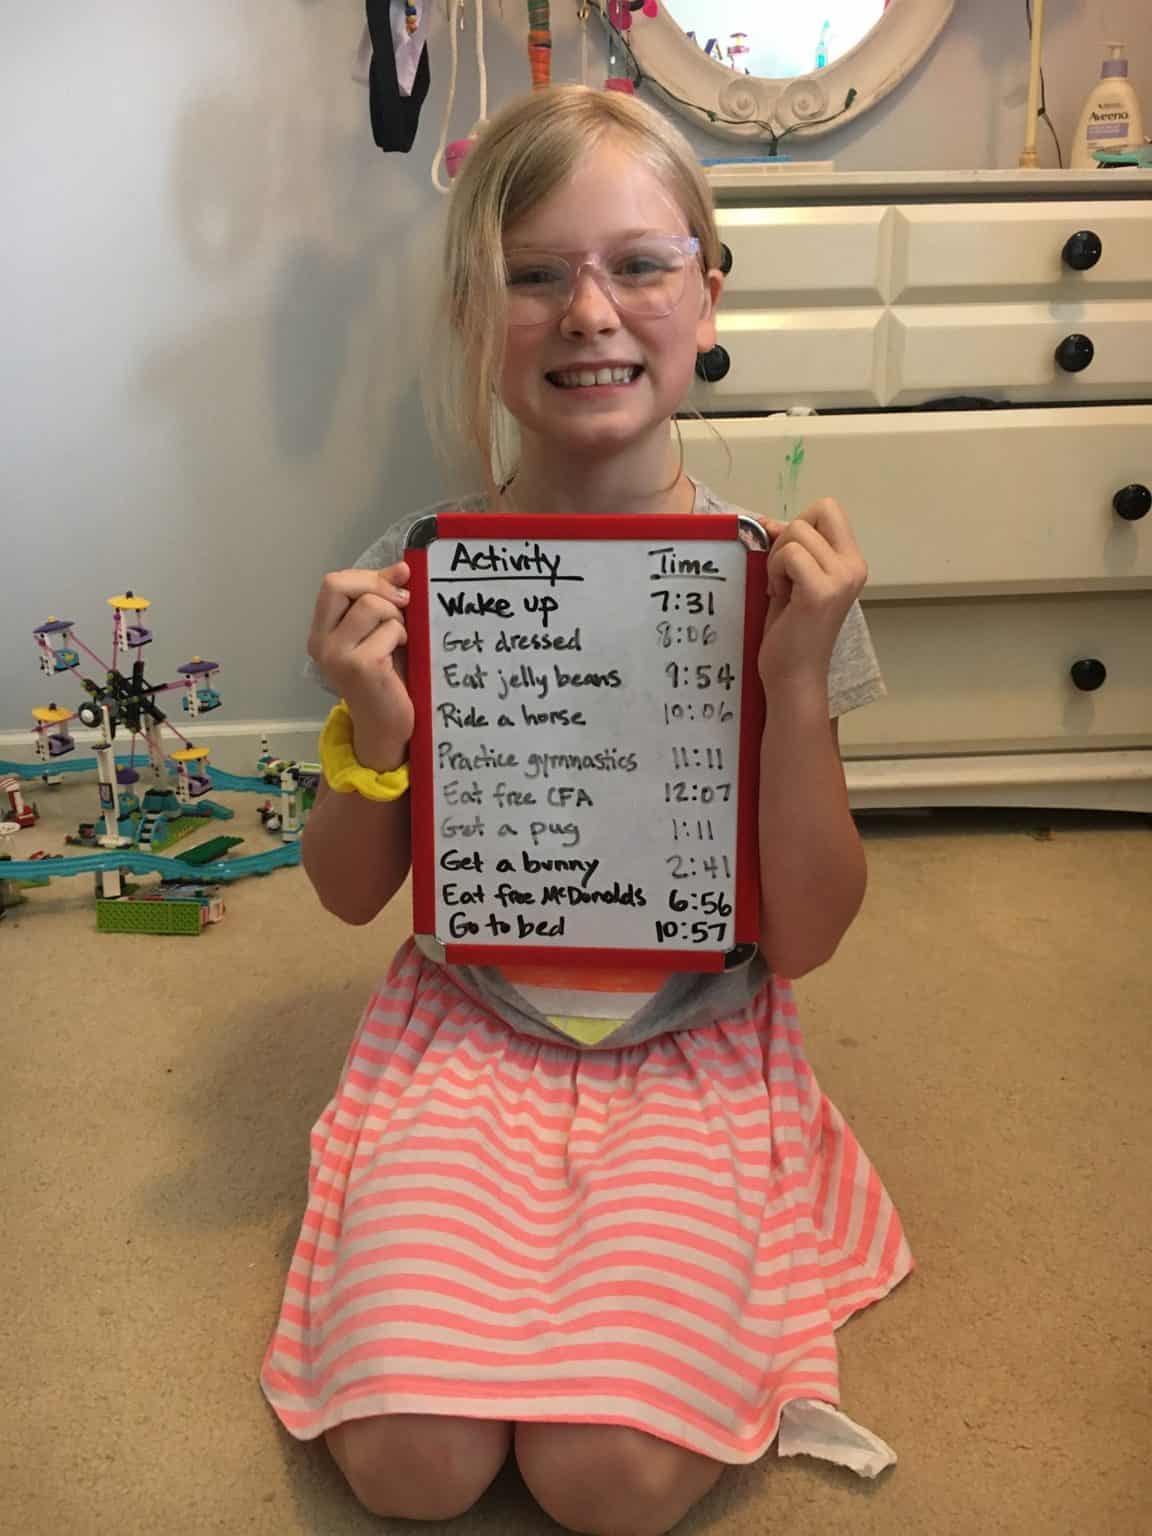 Aveeno
Activity Time
Wake up 7:31
Get dressed 8:06
Eat jelly beans 9:54
Ride a horse 10:06
Practice gymnastics 11:11
Eat free CFA 12:07
Get a pug 1:11
Get a bunny 2:41
Eat free McDonalds 6:56
Go to bed 10:57